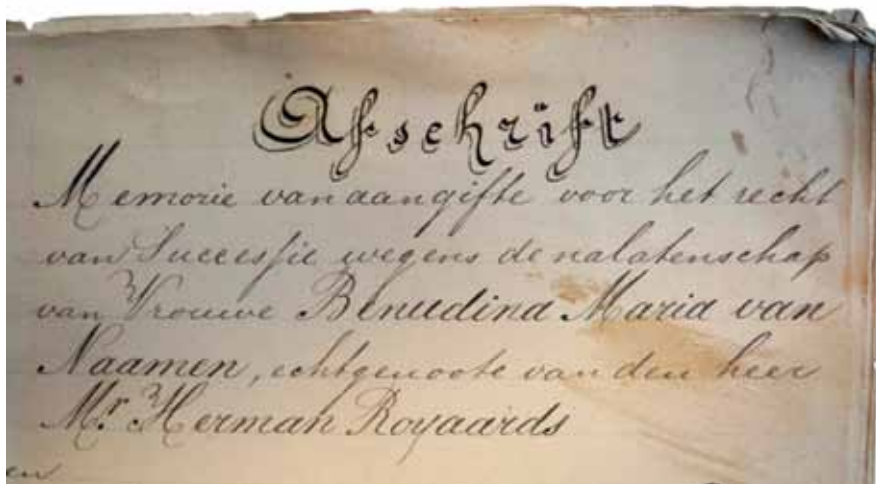 Afschrift
Memorie van aangifte voor het recht
van Successie wegens de nalatenschap
van Vrouwe Benudina Maria van
Naamen, echtgenoote van den heer
Mr. Herman Royaards
en